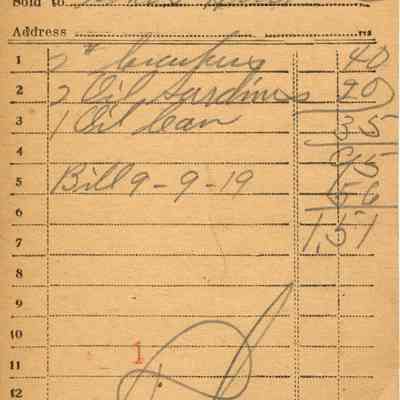 Sold to
Address
1 2 # 40
2 2 Oil Sardines 20
3 1 Oil Can 35
4 95
5 Bill 9-9-19 56
6
7 1,51
8
9
10
1
11
12